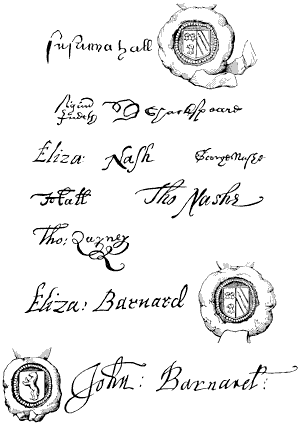 susanna hall
Signum Judeth Shackspeare
Eliza: Nash George Nashe
Jo Hall Tho Nashe
Tho: Quyney
Eliza: Barnard
John: Barnard: